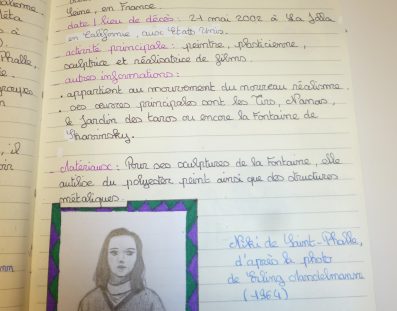 Seine, en France.
date / lieu de décès : 21 mai 2002 à La Jolla
en Californie, aux Etats Unis.
activité principale : peintre, plasticienne,
sculptrice et réalisatrice de films.
autres informations :
• appartient au mouvement du nouveau réalisme.
• ses œuvres principales sont les Tirs, Nanas,
le Jardin des tarots ou encore la Fontaine de
Stravinsky.
- Matériaux : Pour ses sculptures de la Fontaine, elle
utilise du polyester peint ainsi que des structures
métaliques.
Niki de Saint-Phalle,
d'après la photo
de Erling Mandelmann
(1964)